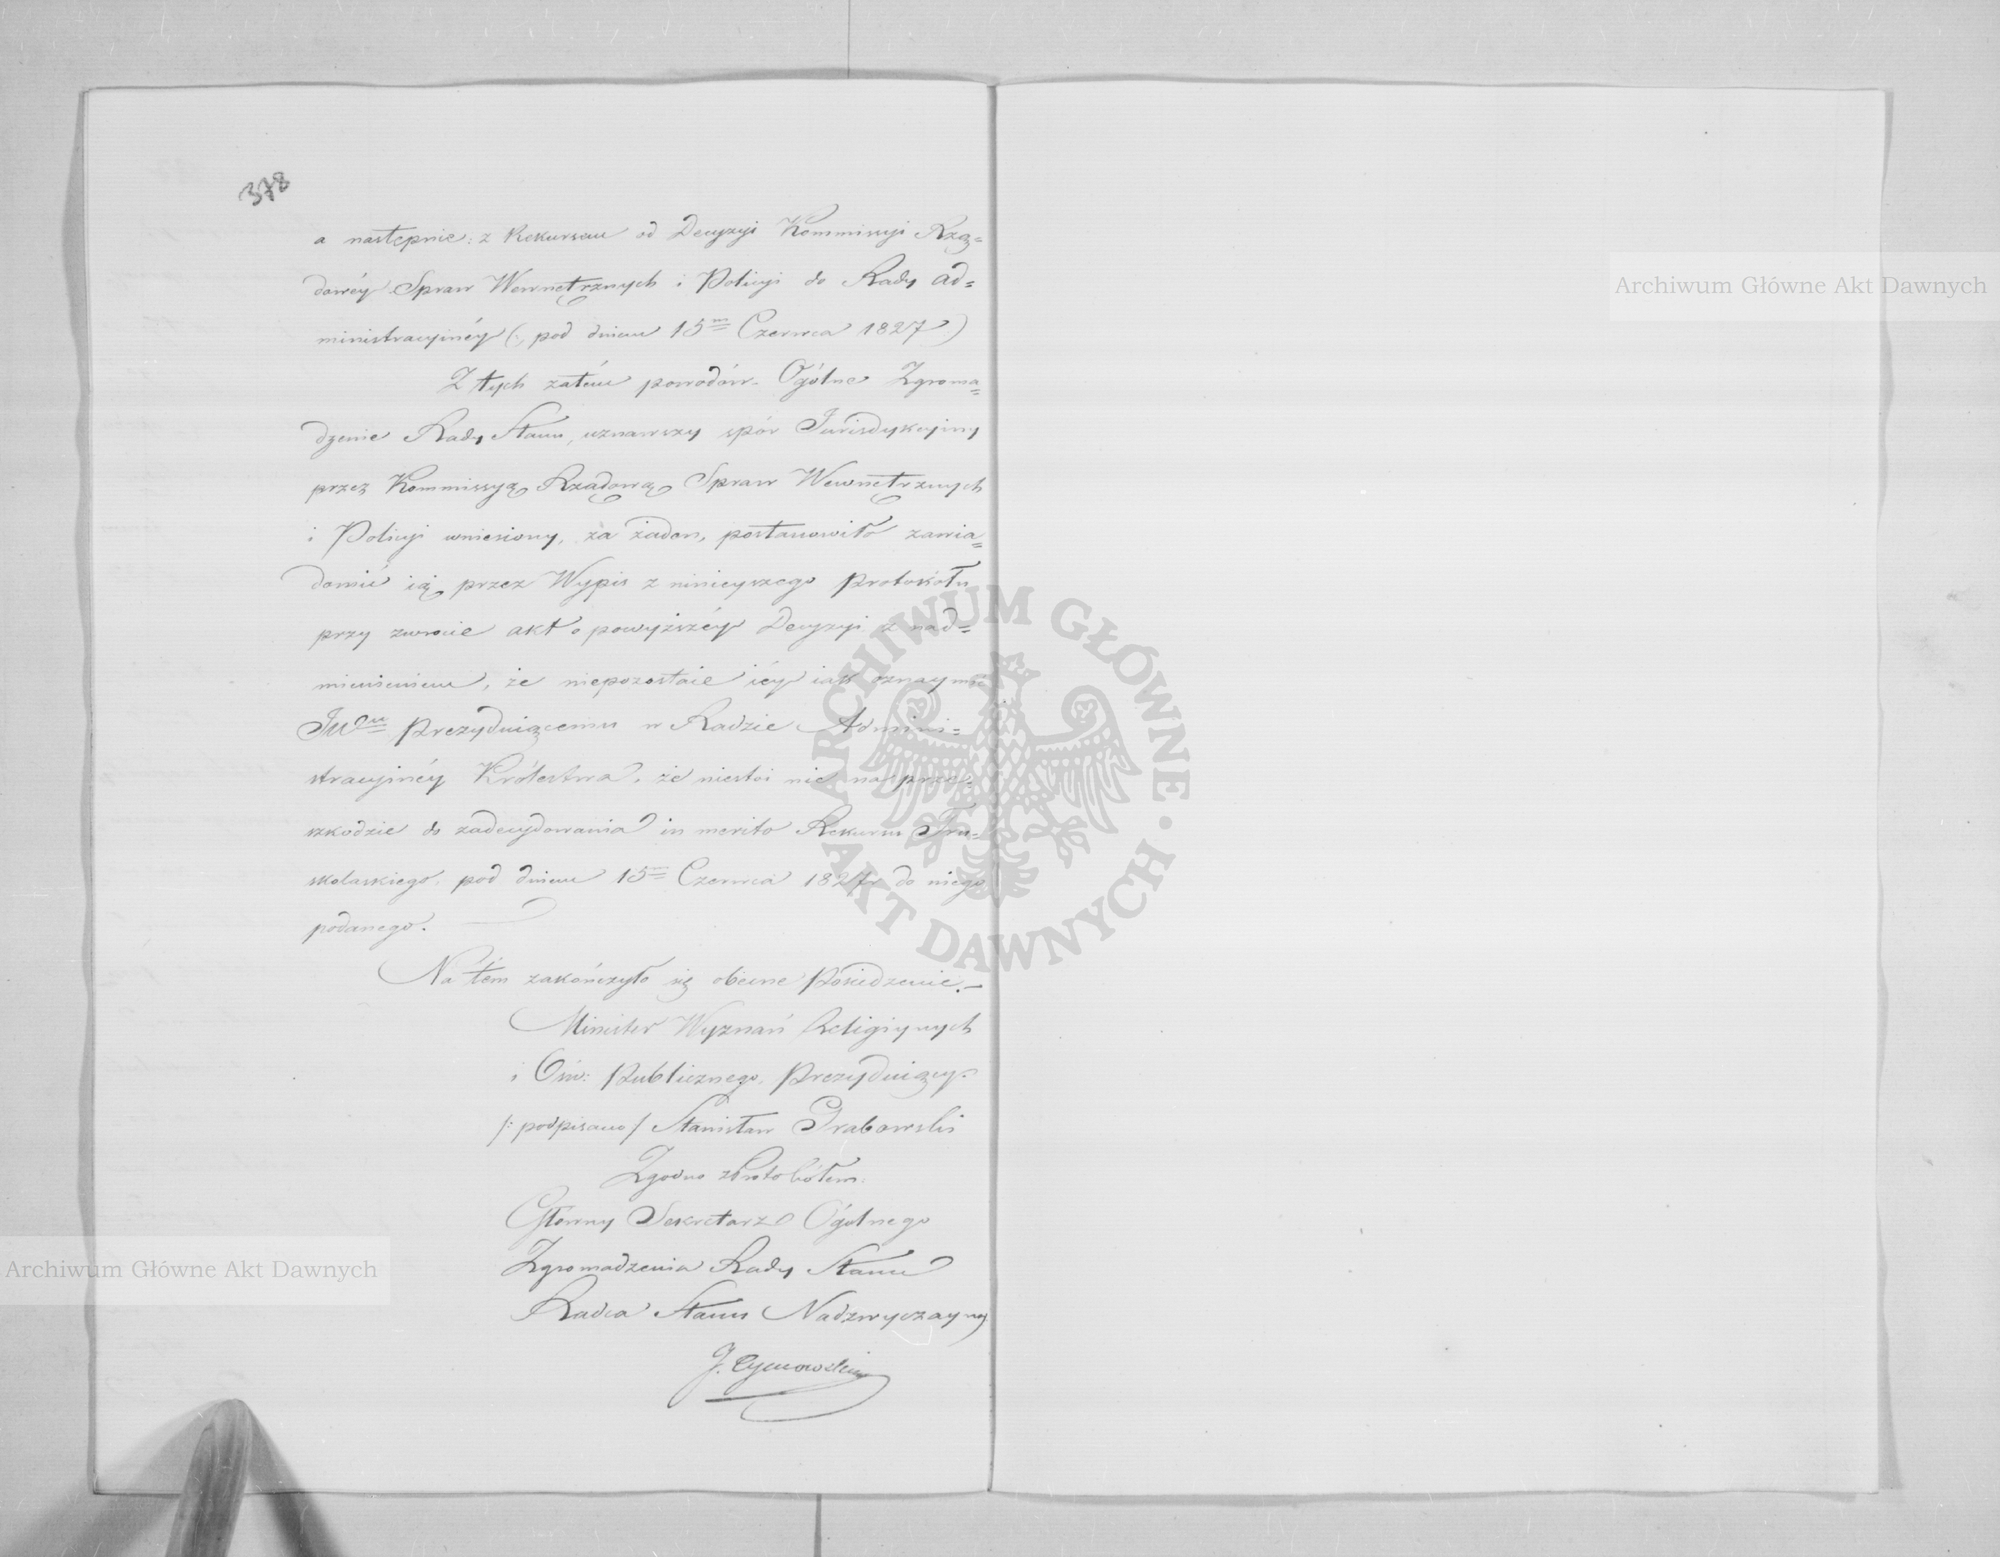 378
a następnie: z Rekursem od Decyzyi Kommissyi Rzą=
dowéy Spraw Wewnętrznych i Policyi do Rady ad=
ministracyinéy (: pod dniem 15m Czerwca 1827.)
Z tych zatém powodów Ogólne Zgroma=
dzenie Rady Stanu, uznawszy spór Jurisdykcyiny
przez Kommissyą Rządową Spraw Wewnętrznych
i Policyi wniesiony, za żaden, postanowiło zawia=
domić ią przez Wypis z ninieyszego Protokołu
przy zwrocie akt o powyższéy Decyzyi z nad=
mienieniem, że niepozostaie iéy iak oznaymić
Prezyduiącemu w Radzie Admini=
stracyinéy Królestwa, że niestoi nic na prze=
szkodzie do zadecydowania in merito Rekursu Tru=
skolaskiego, pod dniem 15m Czerwca 1827r do niego
podanego.
Na tém zakończyło się obecne Posiedzenie.—
Minister Wyznań Religiynych
i Ośw: Publicznego, Prezyduiący.
/: podpisano / Stanisław Grabowski
Zgodno z Protokółem.
Główny Sekretarz Ogólnego
Zgromadzenia Rady Stanu
Radca Stanu Nadzwyczayny
J. Tymowski
Archiwum Główne Akt Dawnych
Archiwum Główne Akt Dawnych
ARCHIWUM GŁÓWNE · AKT DAWNYCH ·